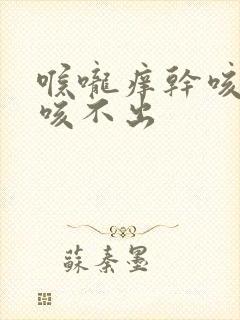 喉嚨癢幹咳
咳不出
蘇秦墨